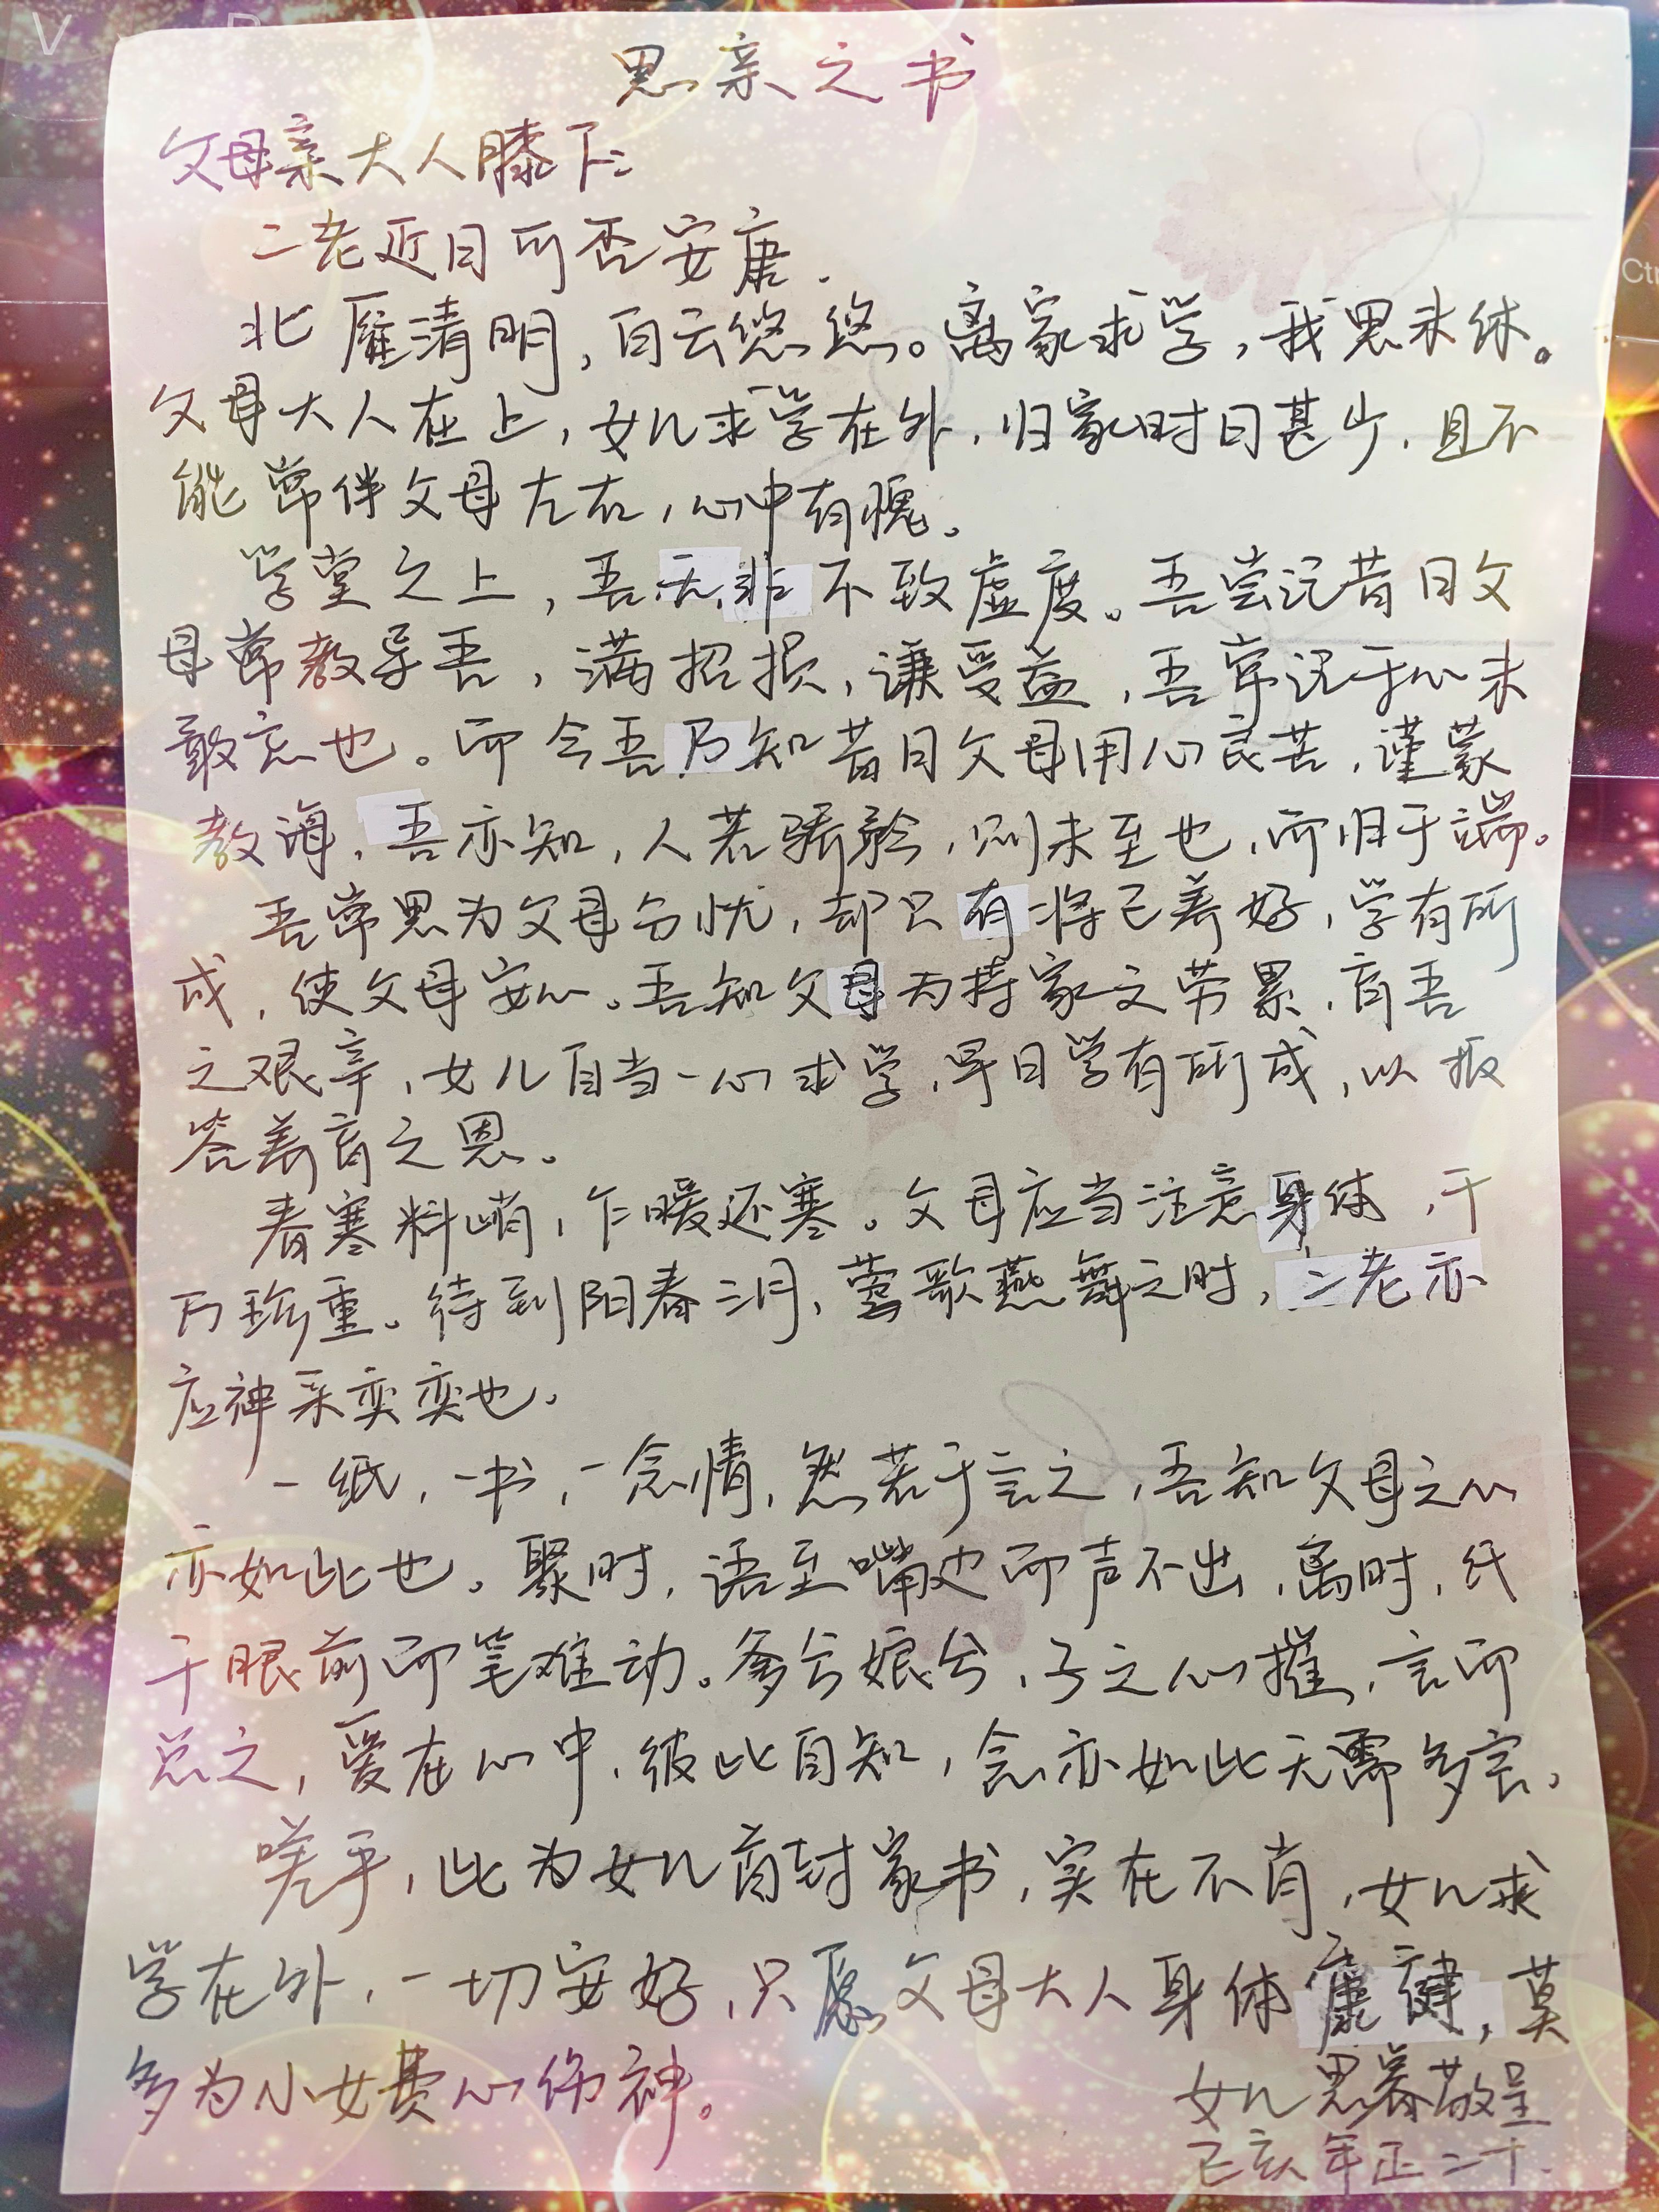 思亲之书
父母亲大人膝下:
二老近日可否安康.
北雁清明,白云悠悠。离家求学,我思未休。
父母大人在上,女儿求学在外,归家时日甚少,且不
能常伴父母左右,心中有愧。
学堂之上,吾无非不致虚度。吾尝记昔日父
母常教导吾,满招损,谦受益,吾常记于心未
敢忘也。而今吾乃知昔日父母用心良苦,谨蒙
教诲,吾亦知,人若骄矜,则未至也,而归于端。
吾常思为父母分忧,却只有将己养好,学有所
成,使父母安心。吾知父母为持家之劳累,育吾
之艰辛,女儿自当一心求学,早日学有所成,以报
答养育之恩。
春寒料峭,乍暖还寒。父母应当注意身体,千
万珍重。待到阳春三月,莺歌燕舞之时,二老亦
应神采奕奕也.
一纸,一书,一念情,然若于言之,吾知父母之心
亦如此也。聚时,语至嘴边而声不出,离时,纸
于眼前而笔难动。爹兮娘兮,子之心摧,言而
总之,爱在心中,彼此自知,念亦如此无需多言,
嗟乎,此为女儿首封家书,实在不肖,女儿求
学在外,一切安好,只愿父母大人身体康健,莫
多为小女费心伤神。
女儿思暮敬呈
己亥年正二十.
V
Ctr